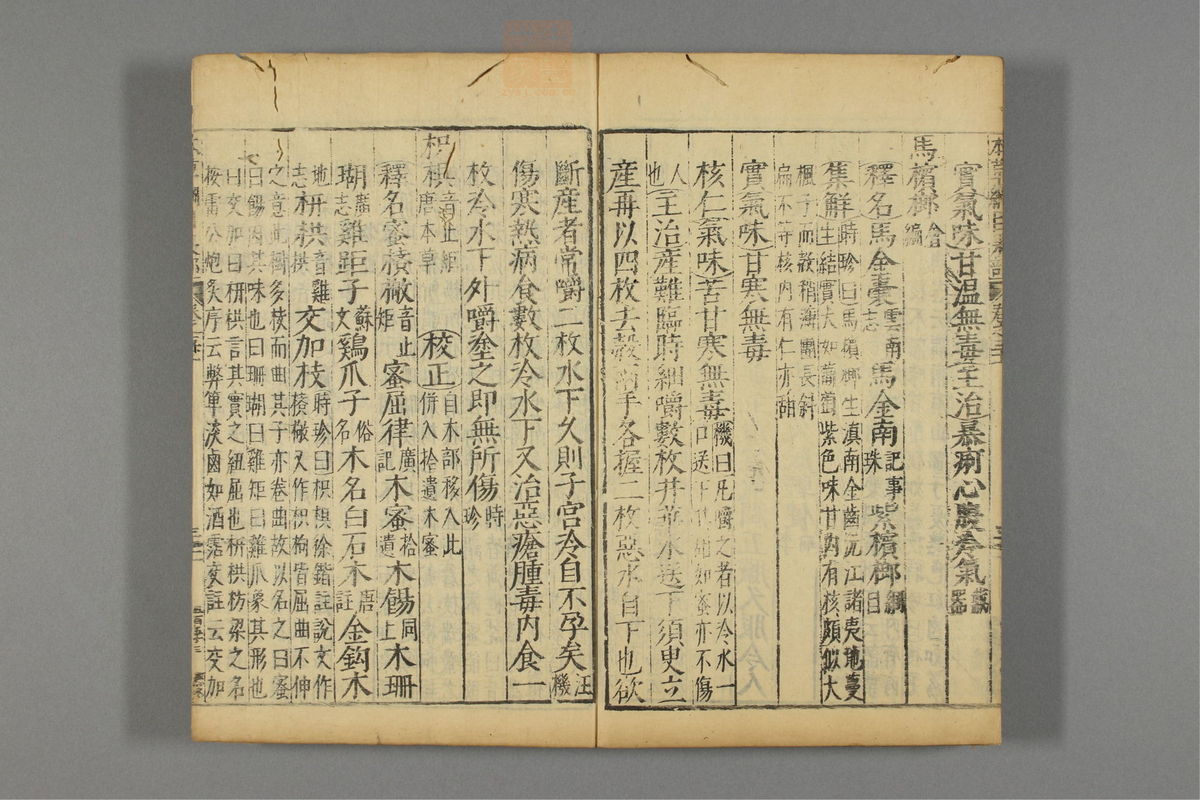 實氣味甘溫無毒主治暴痢心腹冷氣藏器
馬檳榔會編
釋名馬金囊雲南志馬金南記事珠紫檳榔綱目
集解時珍曰馬檳榔生滇南金齒沅江諸夷地蔓
生結實大如葡萄紫色味甘內有核頗似大
楓子而殼稍薄團長斜
扁不等核內有仁亦甜
實氣味甘寒無毒
核仁氣味苦甘寒無毒機曰凡嚼之者以冷水一
口送下其甜如蜜亦不傷
人也主治產難臨時細嚼數枚井華水送下須臾立
產再以四枚去殼兩手各握二枚惡水自下也欲
斷産者常嚼二枚水下久則子宮冷自不孕矣汪機
傷寒熱病食數枚冷水下又治惡瘡腫毒內食一
枚冷水下外嚼塗之即無所傷時珍
枳椇音止矩唐本草
校正併入拾遺木蜜自木部移入此
釋名蜜㮋𣕌音止矩蜜屈律廣記木蜜拾遺木餳同上木珊
瑚廣志雞距子蘇文鷄爪子俗名木名白石木唐註金鈎木
地志枅栱音雞栱交加枝時珍曰枳椇徐鍇註說文作
㮋𣕌又作枳枸皆屈曲不伸
之意此樹多枝而曲其子亦卷曲故以名之曰蜜
曰餳因其味也曰珊瑚曰雞距曰雞爪象其形也
曰交加曰枅栱言其實之紐屈也枅栱枋梁之名
按雷公炮炙序云弊箄淡鹵如酒霑交註云交加